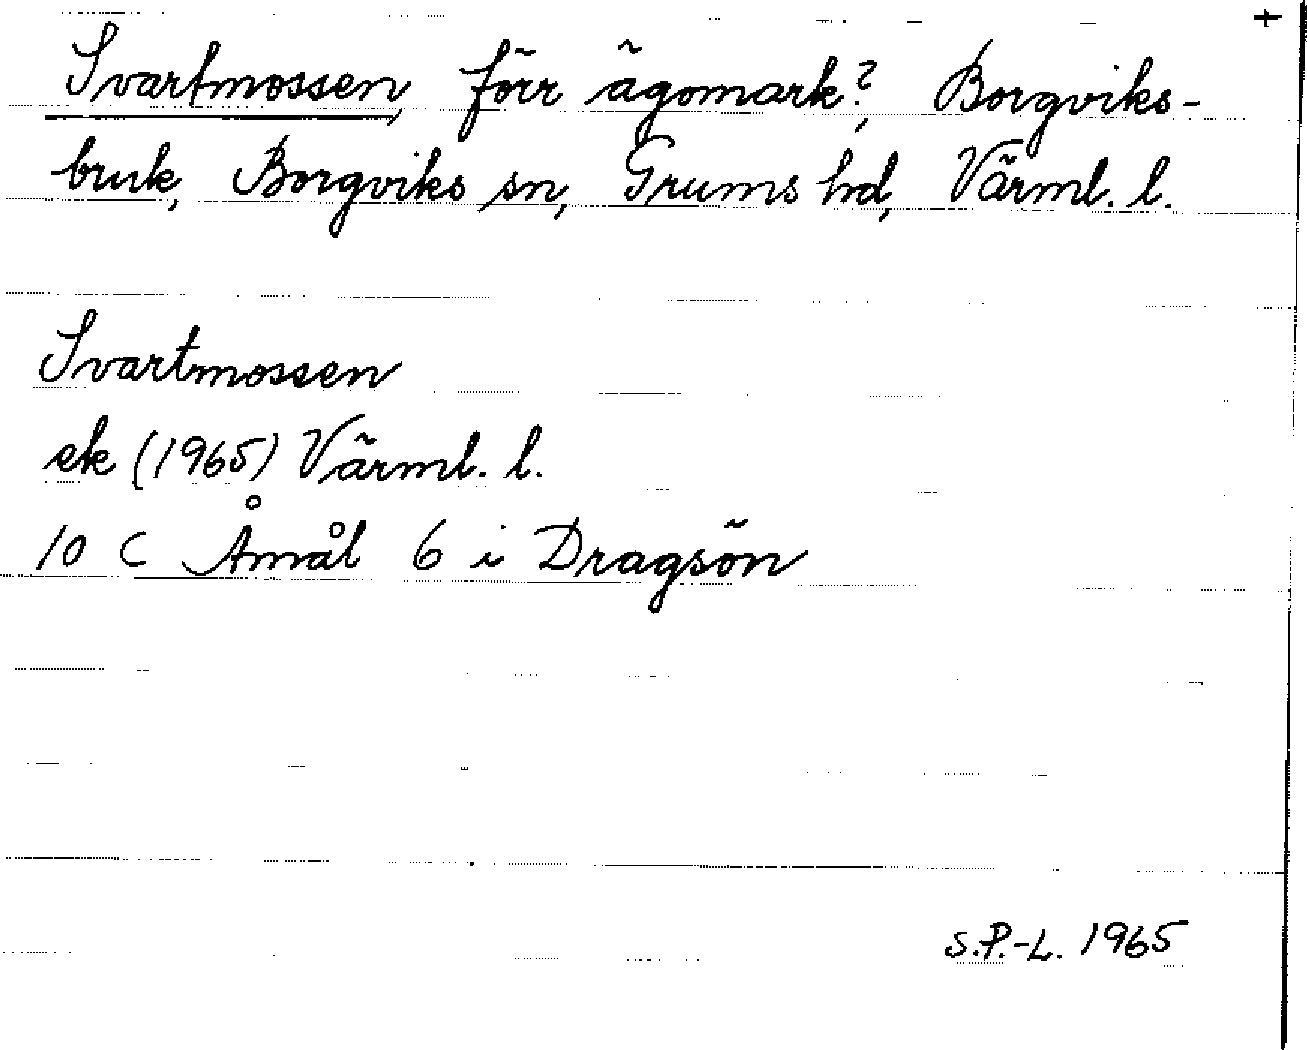 +
Svartmossen, förr ägomark?, Borgviks-
bruk, Borgviks sn, Grums hd, Värml. l.
Svartmossen
ek (1965) Värml. l.
10 C Åmål 6 i Dragsön
S.P.-L. 1965